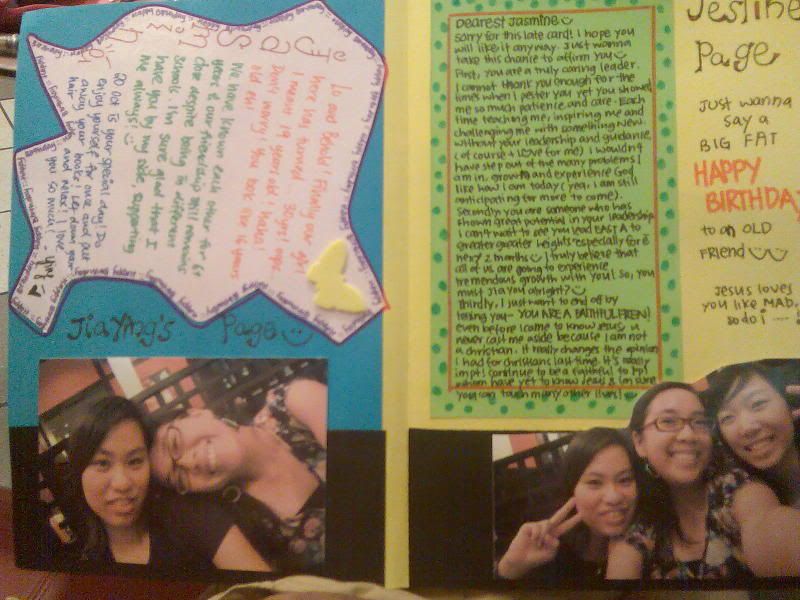 Jasmine
Lo and Behold! Finally our girl
here has turned 30 yrs! oops..
I meant 19 years old! Haha!
Don't worry! You look like 16 years
old ttm!
We have known each other for 6+
years & our friendship still remains
close despite being in different
schools. I'm sure glad that I
have you by my side, supporting
me always!
SO DOI is your special day! Do
enjoy yourself for once and put
away your books! Let down your
hair and relax! I love
you so much!
JiaYing's Page
Dearest Jasmine
Sorry for this late card! I hope you
will like it anyway. Just wanna
take this chance to affirm you
First, you are a truly caring leader.
I cannot thank you enough for the
times when I pester you yet you showed
me so much patience and care. Each
time teaching me, inspiring me and
challenging me with something new.
Without your leadership and guidance
(of course + LOVE for me) I wouldn't
have step out of the many problems I
am in, grow and experience God
like how I am today (yea, I am still
anticipating for more to come).
Secondly you are someone who has
shown great potential in your leadership
I can't wait to see you lead EAST A to
greater greater heights especially for
next 2 months I truly believe that
all of us are going to experience
tremendous growth with you! So, you
must Jia you alright?
Thirdly, I just want to end off by
telling you- YOU ARE A FAITHFUL FREN!
even before I come to know Jesus, u
never cast me aside because I am not
a christian. It really changes the opinion
I had for christians last time. It's really
impt! continue to be a faithful to ppl
whom have yet to know Jesus & I'm sure
you can touch many other lives!
Page
JUST wanna
say a
BIG FAT
HAPPY
BIRTHDAY
to an OLD
FRIEND
Jesus loves
you like MAD,
so do i